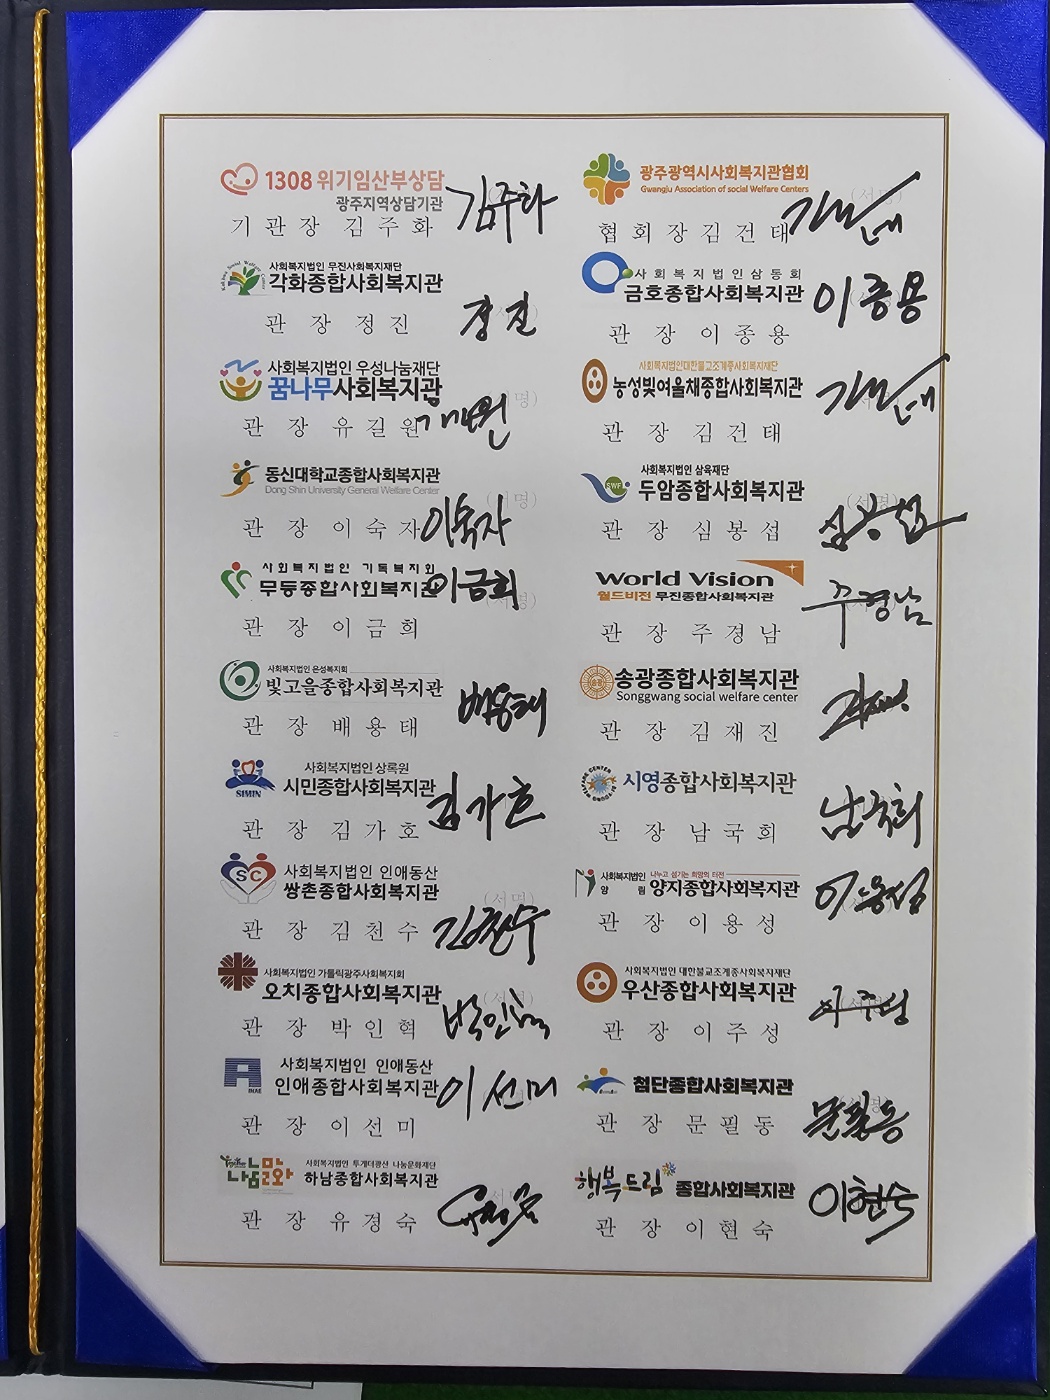 1308 위기임산부상담
광주지역상담기관
기 관 장 김 주 화 김주화
광주광역시사회복지관협회
Gwangju Association of social Welfare Centers
(서명)
협 회 장 김 건 태
사회복지법인 무진사회복지재단
각화종합사회복지관
관 장 정 진 정진
사회복지법인삼동회
금호종합사회복지관
관 장 이 종 용 이종용
사회복지법인 우성나눔재단
꿈나무사회복지관
관 장 유 길 원
사회복지법인대한불교조계종사회복지재단
농성빛여울채종합사회복지관
관 장 김 건 태
동신대학교종합사회복지관
Dong Shin University General Welfare Center
(서명)
관 장 이 숙 자 이숙자
사회복지법인 삼육재단
SWF
두암종합사회복지관
(서명)
관 장 심 봉 섭 심봉섭
사회복지법인 기독복지회
무등종합사회복지관 이금희
관 장 이 금 희
World Vision
월드비전 무진종합사회복지관
관 장 주 경 남 주경남
사회복지법인 은성복지회
빛고을종합사회복지관
관 장 배 용 태 배용태
송광종합사회복지관
Songgwang social welfare center
관 장 김 재 진
사회복지법인 상록원
SIMIN
시민종합사회복지관
관 장 김 가 호 김가호
시영종합사회복지관
관 장 남 국 희 남국희
SC
사회복지법인 인애동산
쌍촌종합사회복지관
(서명)
관 장 김 천 수 김천수
사회복지법인 양림
나누고 섬기는 희망의 터전
양지종합사회복지관
관 장 이 용 성 이용성
사회복지법인 가톨릭광주사회복지회
오치종합사회복지관
(서명)
관 장 박 인 혁 박인혁
사회복지법인 대한불교조계종사회복지재단
우산종합사회복지관
관 장 이 주 성 이주성
사회복지법인 인애동산
INAE
인애종합사회복지관 이선미
관 장 이 선 미
첨단종합사회복지관
관 장 문 필 동 문필동
Together 나눔문화
사회복지법인 투게더광산 나눔문화재단
하남종합사회복지관
관 장 유 경 숙
행복드림 종합사회복지관
관 장 이 현 숙 이현숙